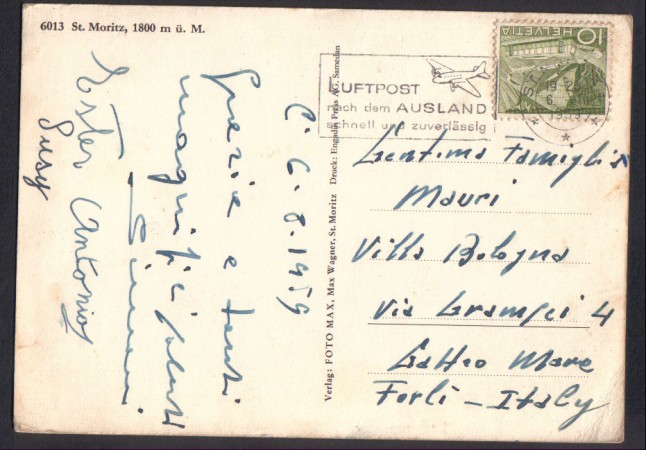 6013 St. Moritz, 1800 m ü. M.
C. 6.8.1959
Grazie e tanti
magnifici saluti
Simoni
Ester Antonio
Susy
Verlag: FOTO MAX, Max Wagner, St. Moritz Druck: Engadin Press AG. Samedan
LUFTPOST
nach dem AUSLAND
schnell und zuverlässig
HELVETIA
10
Gentima Famiglia
Mauri
Villa Bologna
Via Gramsci 4
Gatteo Mare
Forlì - Italy